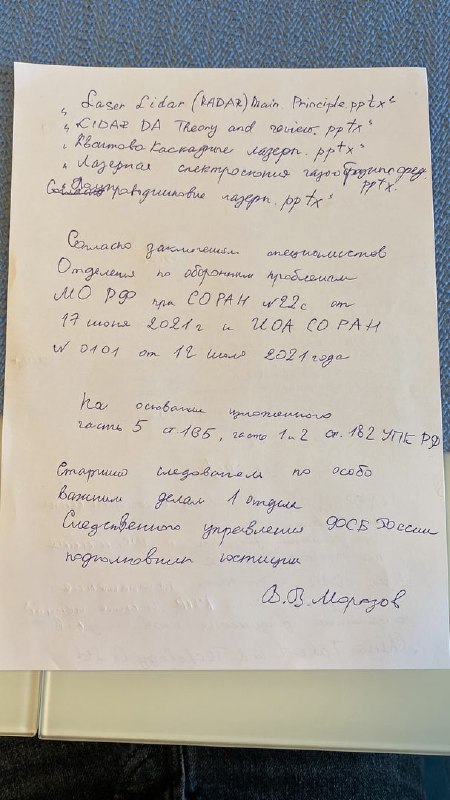 „Laser Lidar (RADAR) Main Principle.pptx“
„LIDAR DA Theory and review.pptx“
„Квантово Каскадные лазеры.pptx“
„Лазерная спектроскопия газообразных сред.
pptx.
„Полупроводниковые лазеры.pptx“
Согласно заключениям специалистов
Отделения по оборонным проблемам
МО РФ при СО РАН №22с от
17 июня 2021г и ИОА СО РАН
№ 0101 от 12 июля 2021 года
На основании изложенного
часть 5 ст.165, часть 1 и 2 ст. 182 УПК РФ
Старший следователь по особо
важным делам 1 отдела
Следственного управления ФСБ России
подполковник юстиции
В.В. Морозов